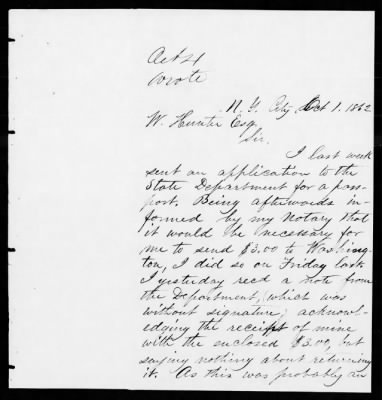 Oct 4
Wrote
N. Y. City Oct 1. 1862
W. Hunter Esq.
Sir.
I last week
sent an application to the
State Department for a pass-
port. Being afterwards in-
formed by my Notary that
it would be necessary for
me to send $3.00 to Washing-
ton, I did so on Friday last.
I yesterday recd a note from
the Department, which was
without signature; acknowl-
edging the receipt of mine
with the enclosed $3.00, but
saying nothing about returning
it. As this was probably an